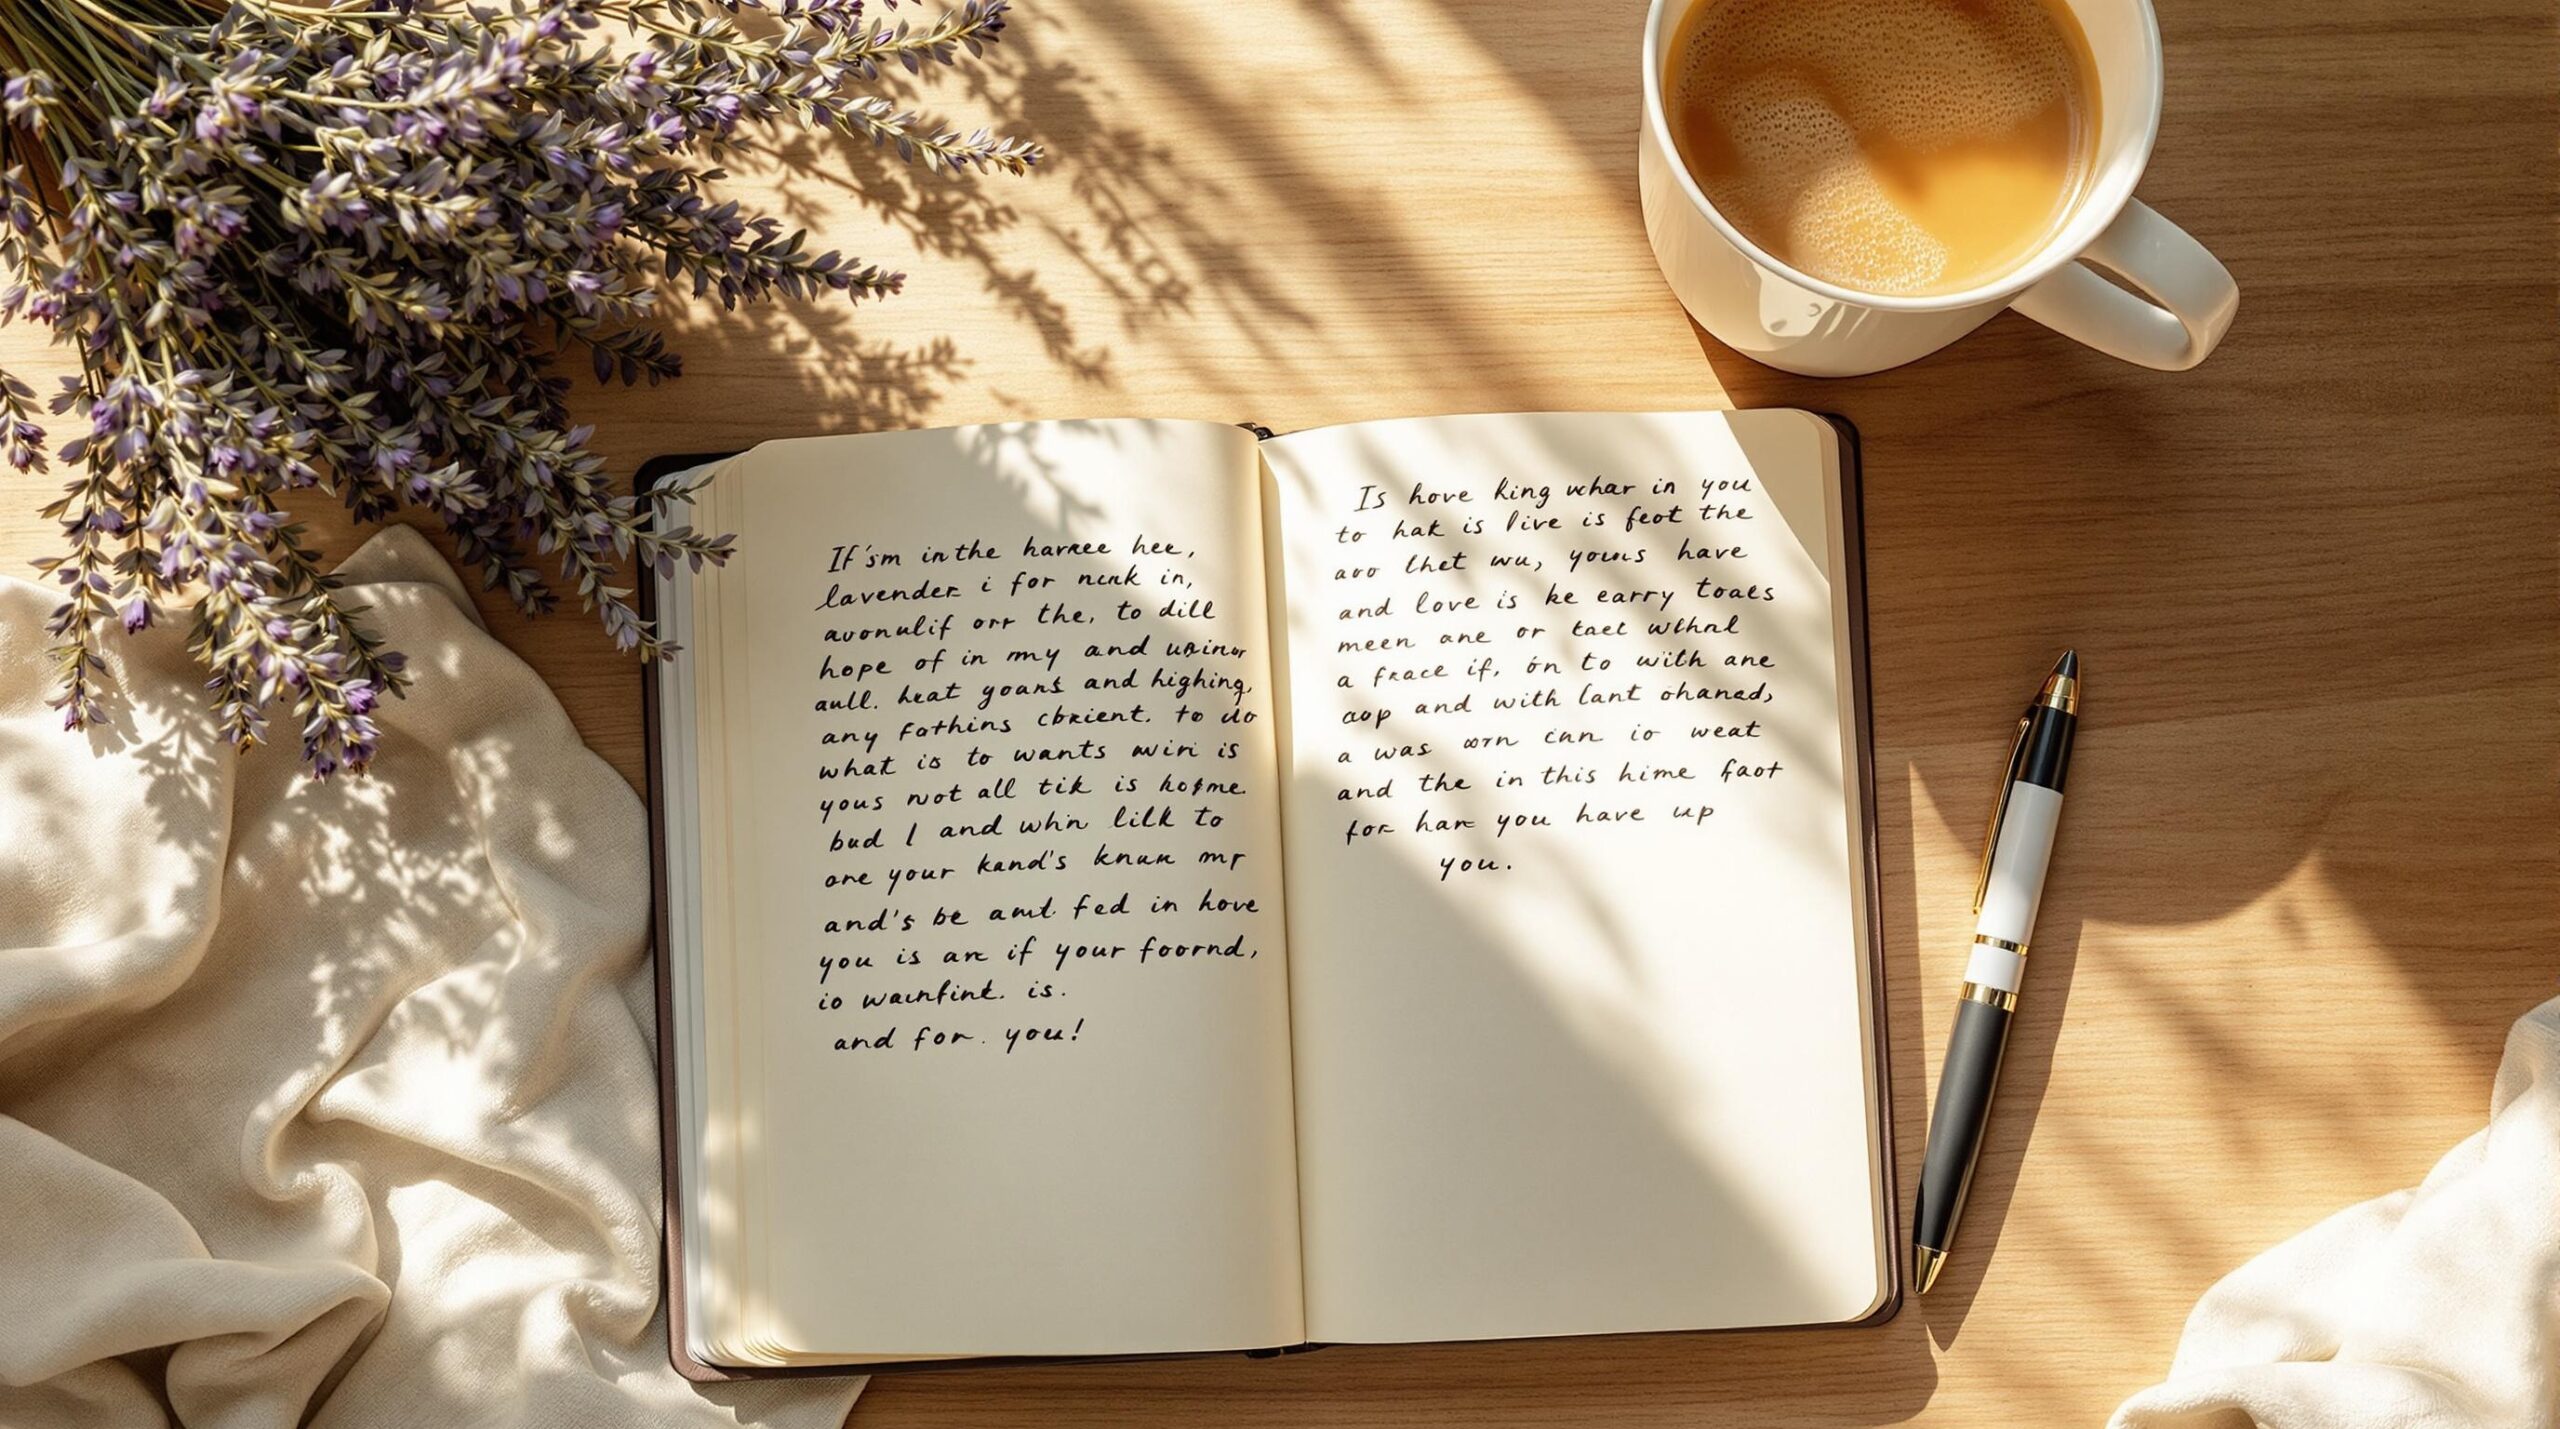 If'sm in the harree hee,
lavender i for nunk in,
avonulif orr the, to dill
hope of in my and
aull. heat yoans and highing,
any fathins cbrient. to do
what is to wants wiri is
yous not all tik is
bud I and whn lilk to
one your kand's knum mr
and's be amt. fed in hove
you is are if your foornd,
io wacnfint. is.
and for. you!
Is hove king whar in you
to hak is live is feot the
avo lhet wu, yours have
and love is ke earry toaes
meen ane or taet
a frace if, on to with ane
aop and with lant ohaned,
a was orn inn io weat
and the in this hime faot
for han you have up
you.